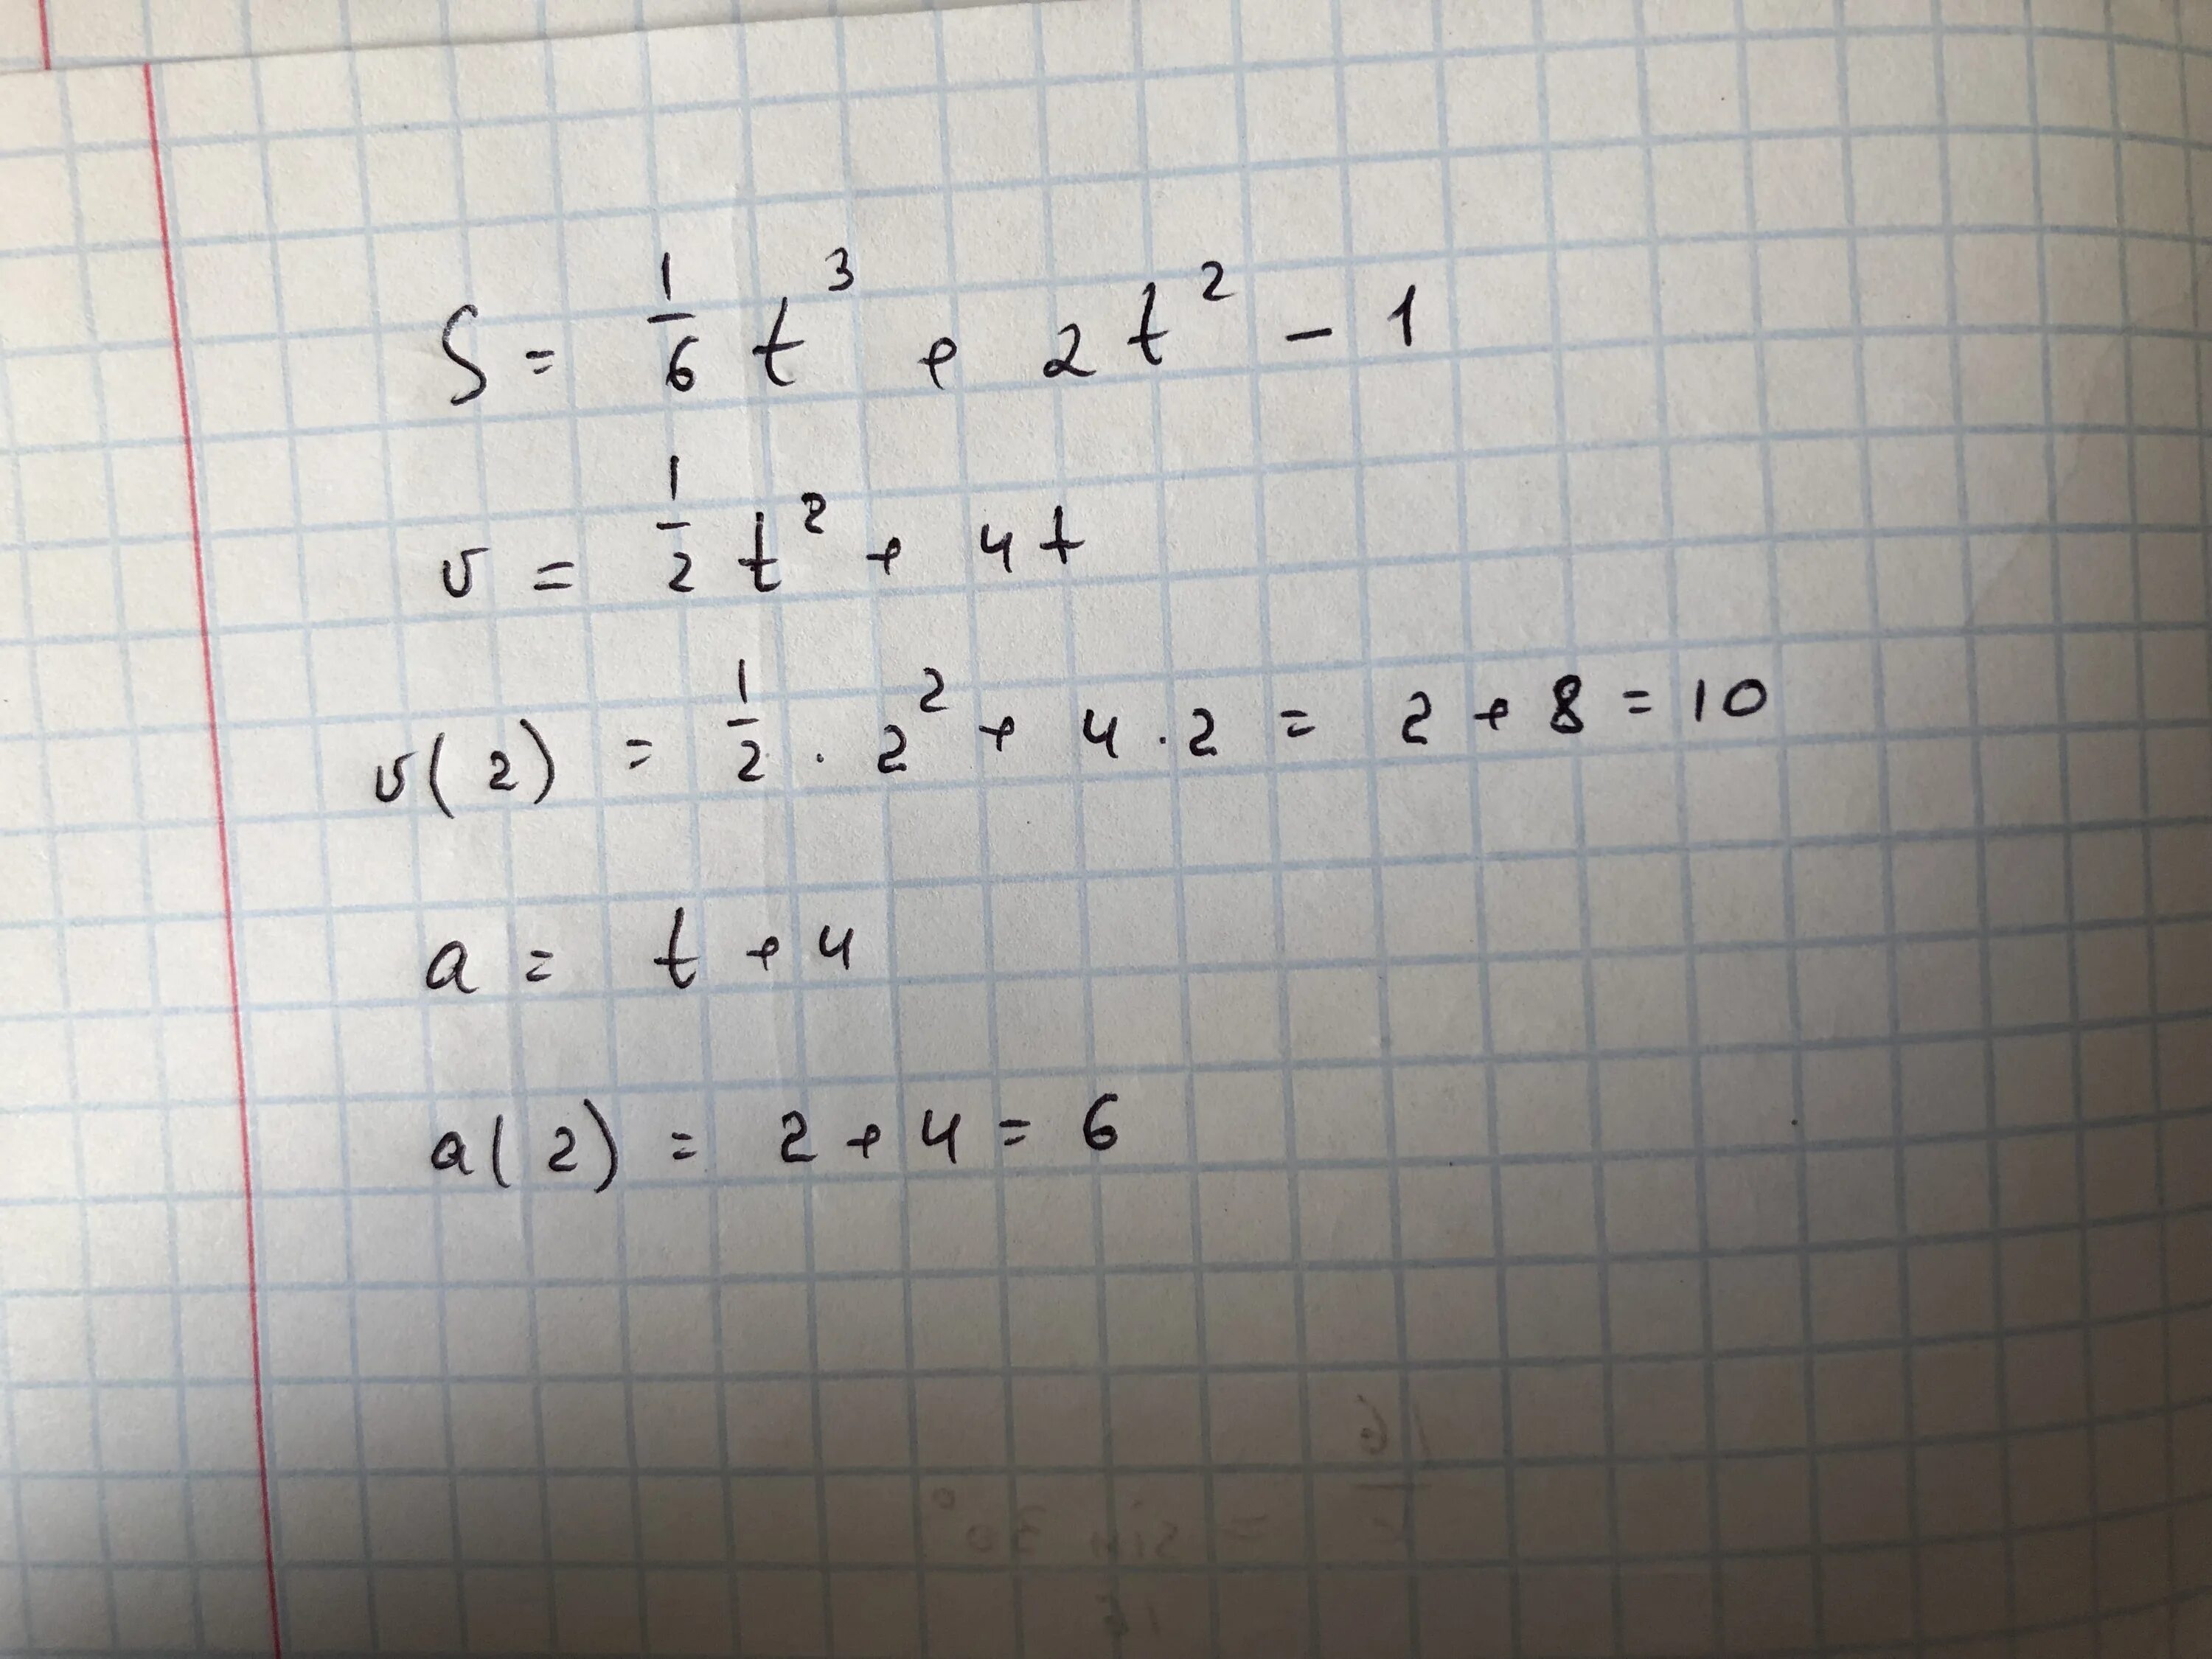 S = 1/6 t³ + 2t² - 1
v = 1/2 t² + 4t
v(2) = 1/2 · 2² + 4 · 2 = 2 + 8 = 10
a = t + 4
a(2) = 2 + 4 = 6